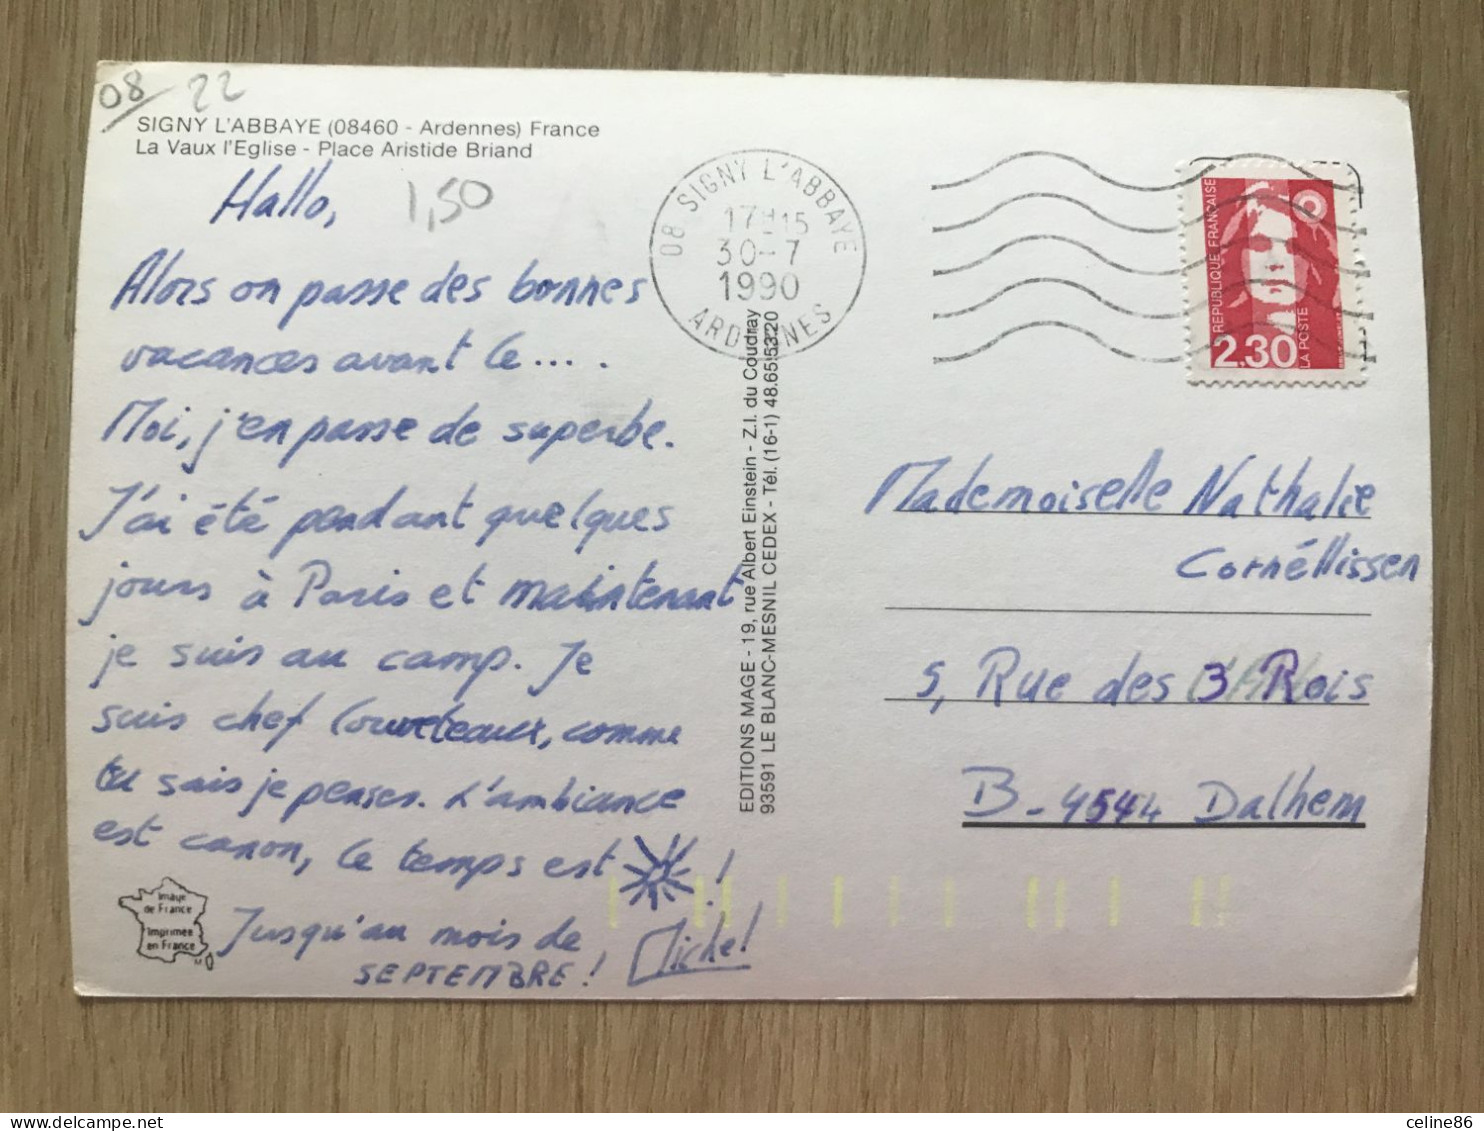 08/ 22
SIGNY L'ABBAYE (08460 - Ardennes) France
La Vaux l'Eglise - Place Aristide Briand
Hallo,
1,50
Alors on passe des bonnes
vacances avant le ....
Moi, j'en passe de superbe.
J'ai été pendant quelques
jours à Paris et maintenant
je suis au camp. Je
suis chef louveteaux, comme
tu sais je penses. L'ambiance
est canon, le temps est !
Jusqu'au mois de
SEPTEMBRE ! Michel
Image
de France
Imprimée
en France
EDITIONS MAGE - 19, rue Albert Einstein - Z.I. du Coudray
93591 LE BLANC-MESNIL CEDEX - Tél. (16-1) 48.65.53.20
08 SIGNY L'ABBAYE
17H15
30-7
1990
ARDENNES
REPUBLIQUE FRANÇAISE
2,30
LA POSTE
Mademoiselle Nathalie
Cornéllissen
5, Rue des 3 Rois
B-4544 Dalhem
celine86
delcampe.net